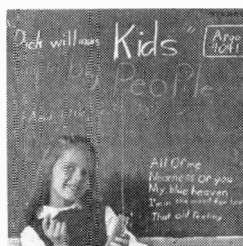 "Dick williams Kids"
Argo
4041
big People
All Of me
Nearness Of you
My blue heaven
I'm in the mood for love
That old feeling